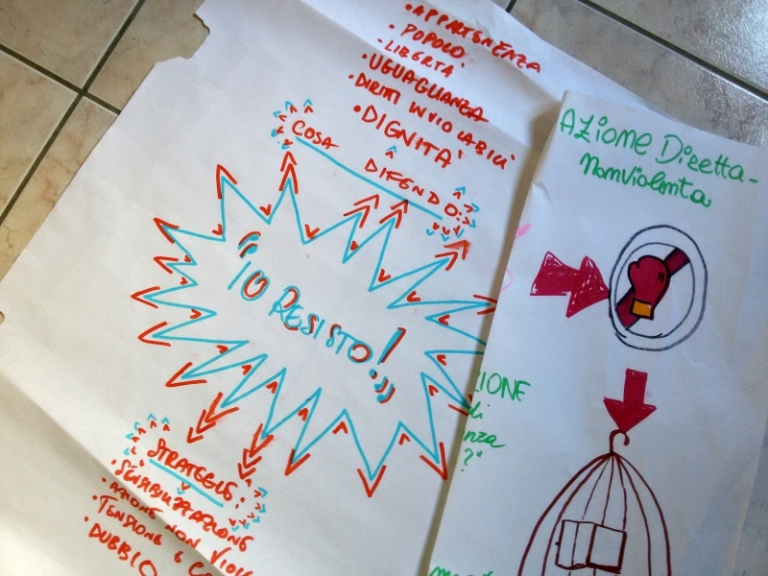 • APPARTENENZA
• POPOLO
- LIBERTÀ
• UGUAGLIANZA
• DIRITTI INVIOLABILI
• DIGNITÀ
COSA DIFENDO:
"IO RESISTO!"
STRATEGIE:
• SENSIBILIZZAZIONE
• AZIONE NON
• TENSIONE E
• DUBBIO
AZIONE DIRETTA -
NONVIOLENTA
ZIONE
di
nza
?"